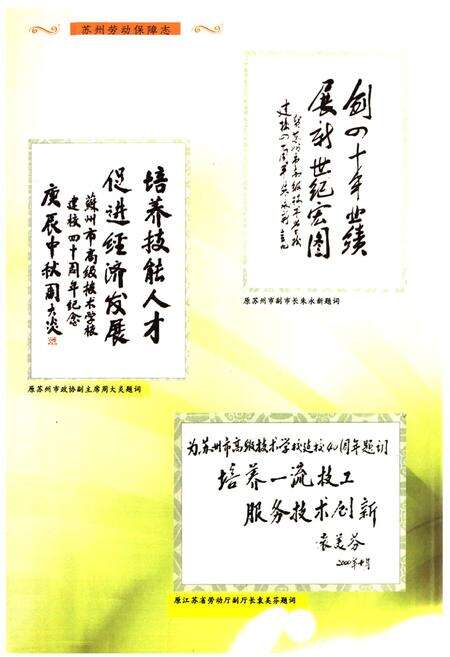 苏州劳动保障志
创四十年业绩
展新世纪宏图
建校四十周年
原苏州市副市长朱永新题词
培养技能人才
促进经济发展
蘇州市高级技术学校
建校四十周年纪念
庚辰中秋周大炎
原苏州市政协副主席周大炎题词
为苏州市高级技术学校建校40周年题词
培养一流技工
服务技术创新
袁美芬
2000年十月
原江苏省劳动厅副厅长袁美芬题词